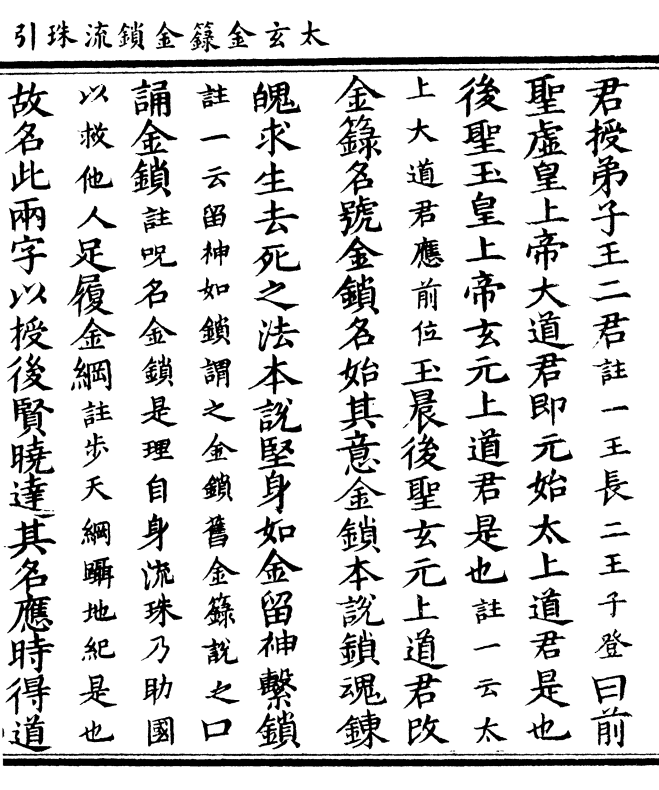 太玄金籙金鎖流珠引
君授弟子王二君註一王長二王子登曰前
聖虛皇上帝大道君即元始太上道君是也
後聖玉皇上帝玄元上道君是也註一云太
上大道君應前位玉晨後聖玄元上道君改
金籙名號金鎖名始其意金鎖本說鎖魂鍊
魄求生去死之法本說堅身如金留神繫鎖
註一云留神如鎖謂之金鎖舊金籙說之口
誦金鎖註呪名金鎖是理自身流珠乃助國
以救他人足履金綱註步天綱躡地紀是也
故名此兩字以授後賢曉達其名應時得道